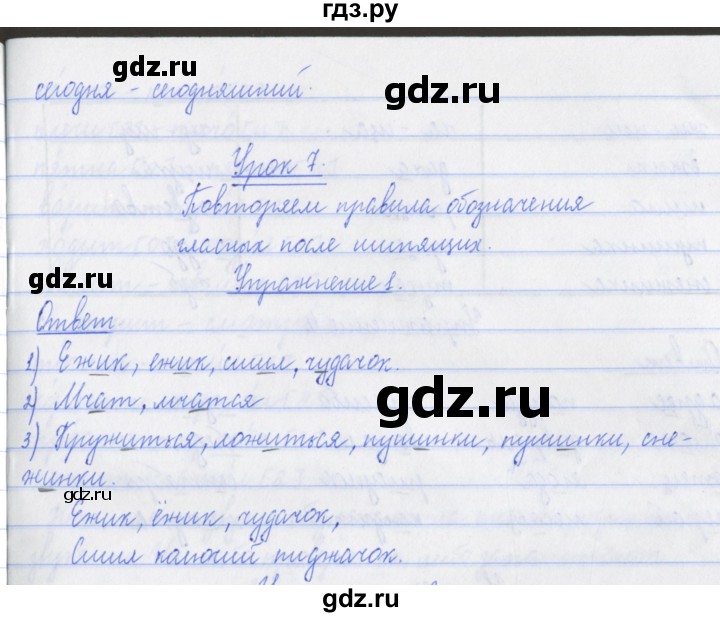 гдз.ру
gdz.ru
сегодня - сегодняшний.
gdz.ru
Урок 7.
Повторяем правила обозначения
гласных после шипящих.
gdz.ru
Упражнение 1.
Ответ
1) Ежик, ежик, сшил, чудачок.
gdz.ru
2) Мчат, мчатся
3) Кружиться, ложиться, пушинки, пушинки, сне-
жинки.
gdz.ru
Ежик, ёжик, чудачок,
gdz.ru
Сшил колючий пиджачок.
gdz.ru